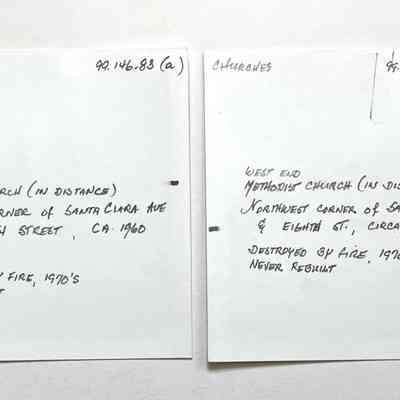 99.146.83 (a)
RCH (IN DISTANCE)
RNER OF SANTA CLARA AVE
STREET, CA. 1960
Y FIRE, 1970'S
T
CHURCHES
99.
WEST END
METHODIST CHURCH (IN DIS
NORTHWEST CORNER OF SA
& EIGHTH ST., CIRCA
DESTROYED BY FIRE, 1970
NEVER REBUILT